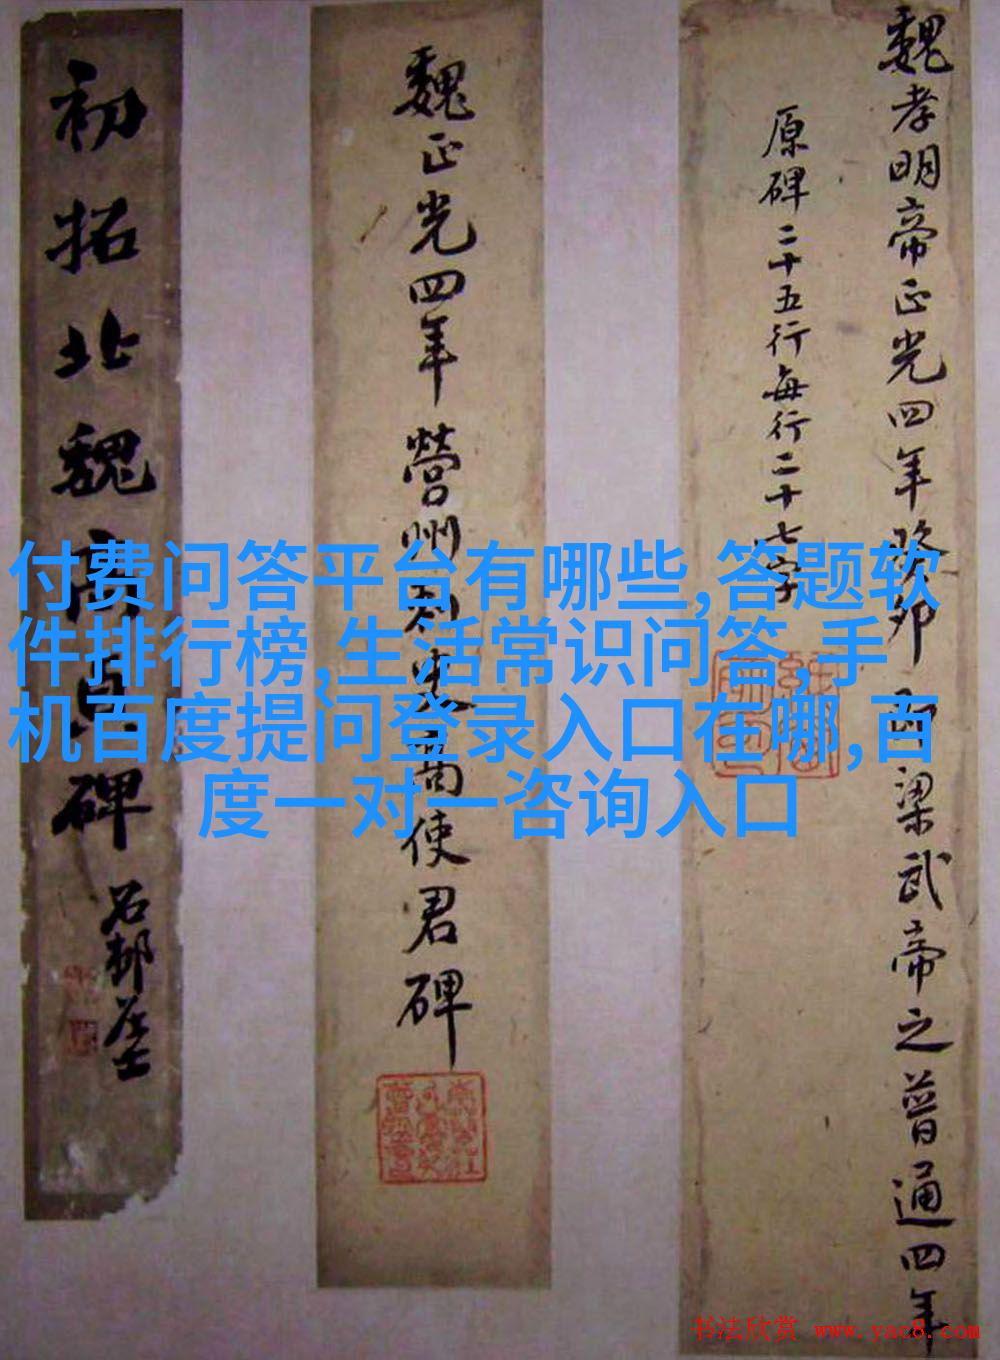 魏孝明帝正光四年癸卯即梁武帝之普通四年
原碑二十五行每行二十七字
魏正光四年營州刺史高使君碑
初拓北魏高貞碑
石邨居士
付费问答平台有哪些,答题软
件排行榜,生活常识问答,手
机百度提问登录入口在哪,百
度一对一咨询入口
书法欣赏 www.yac8.com